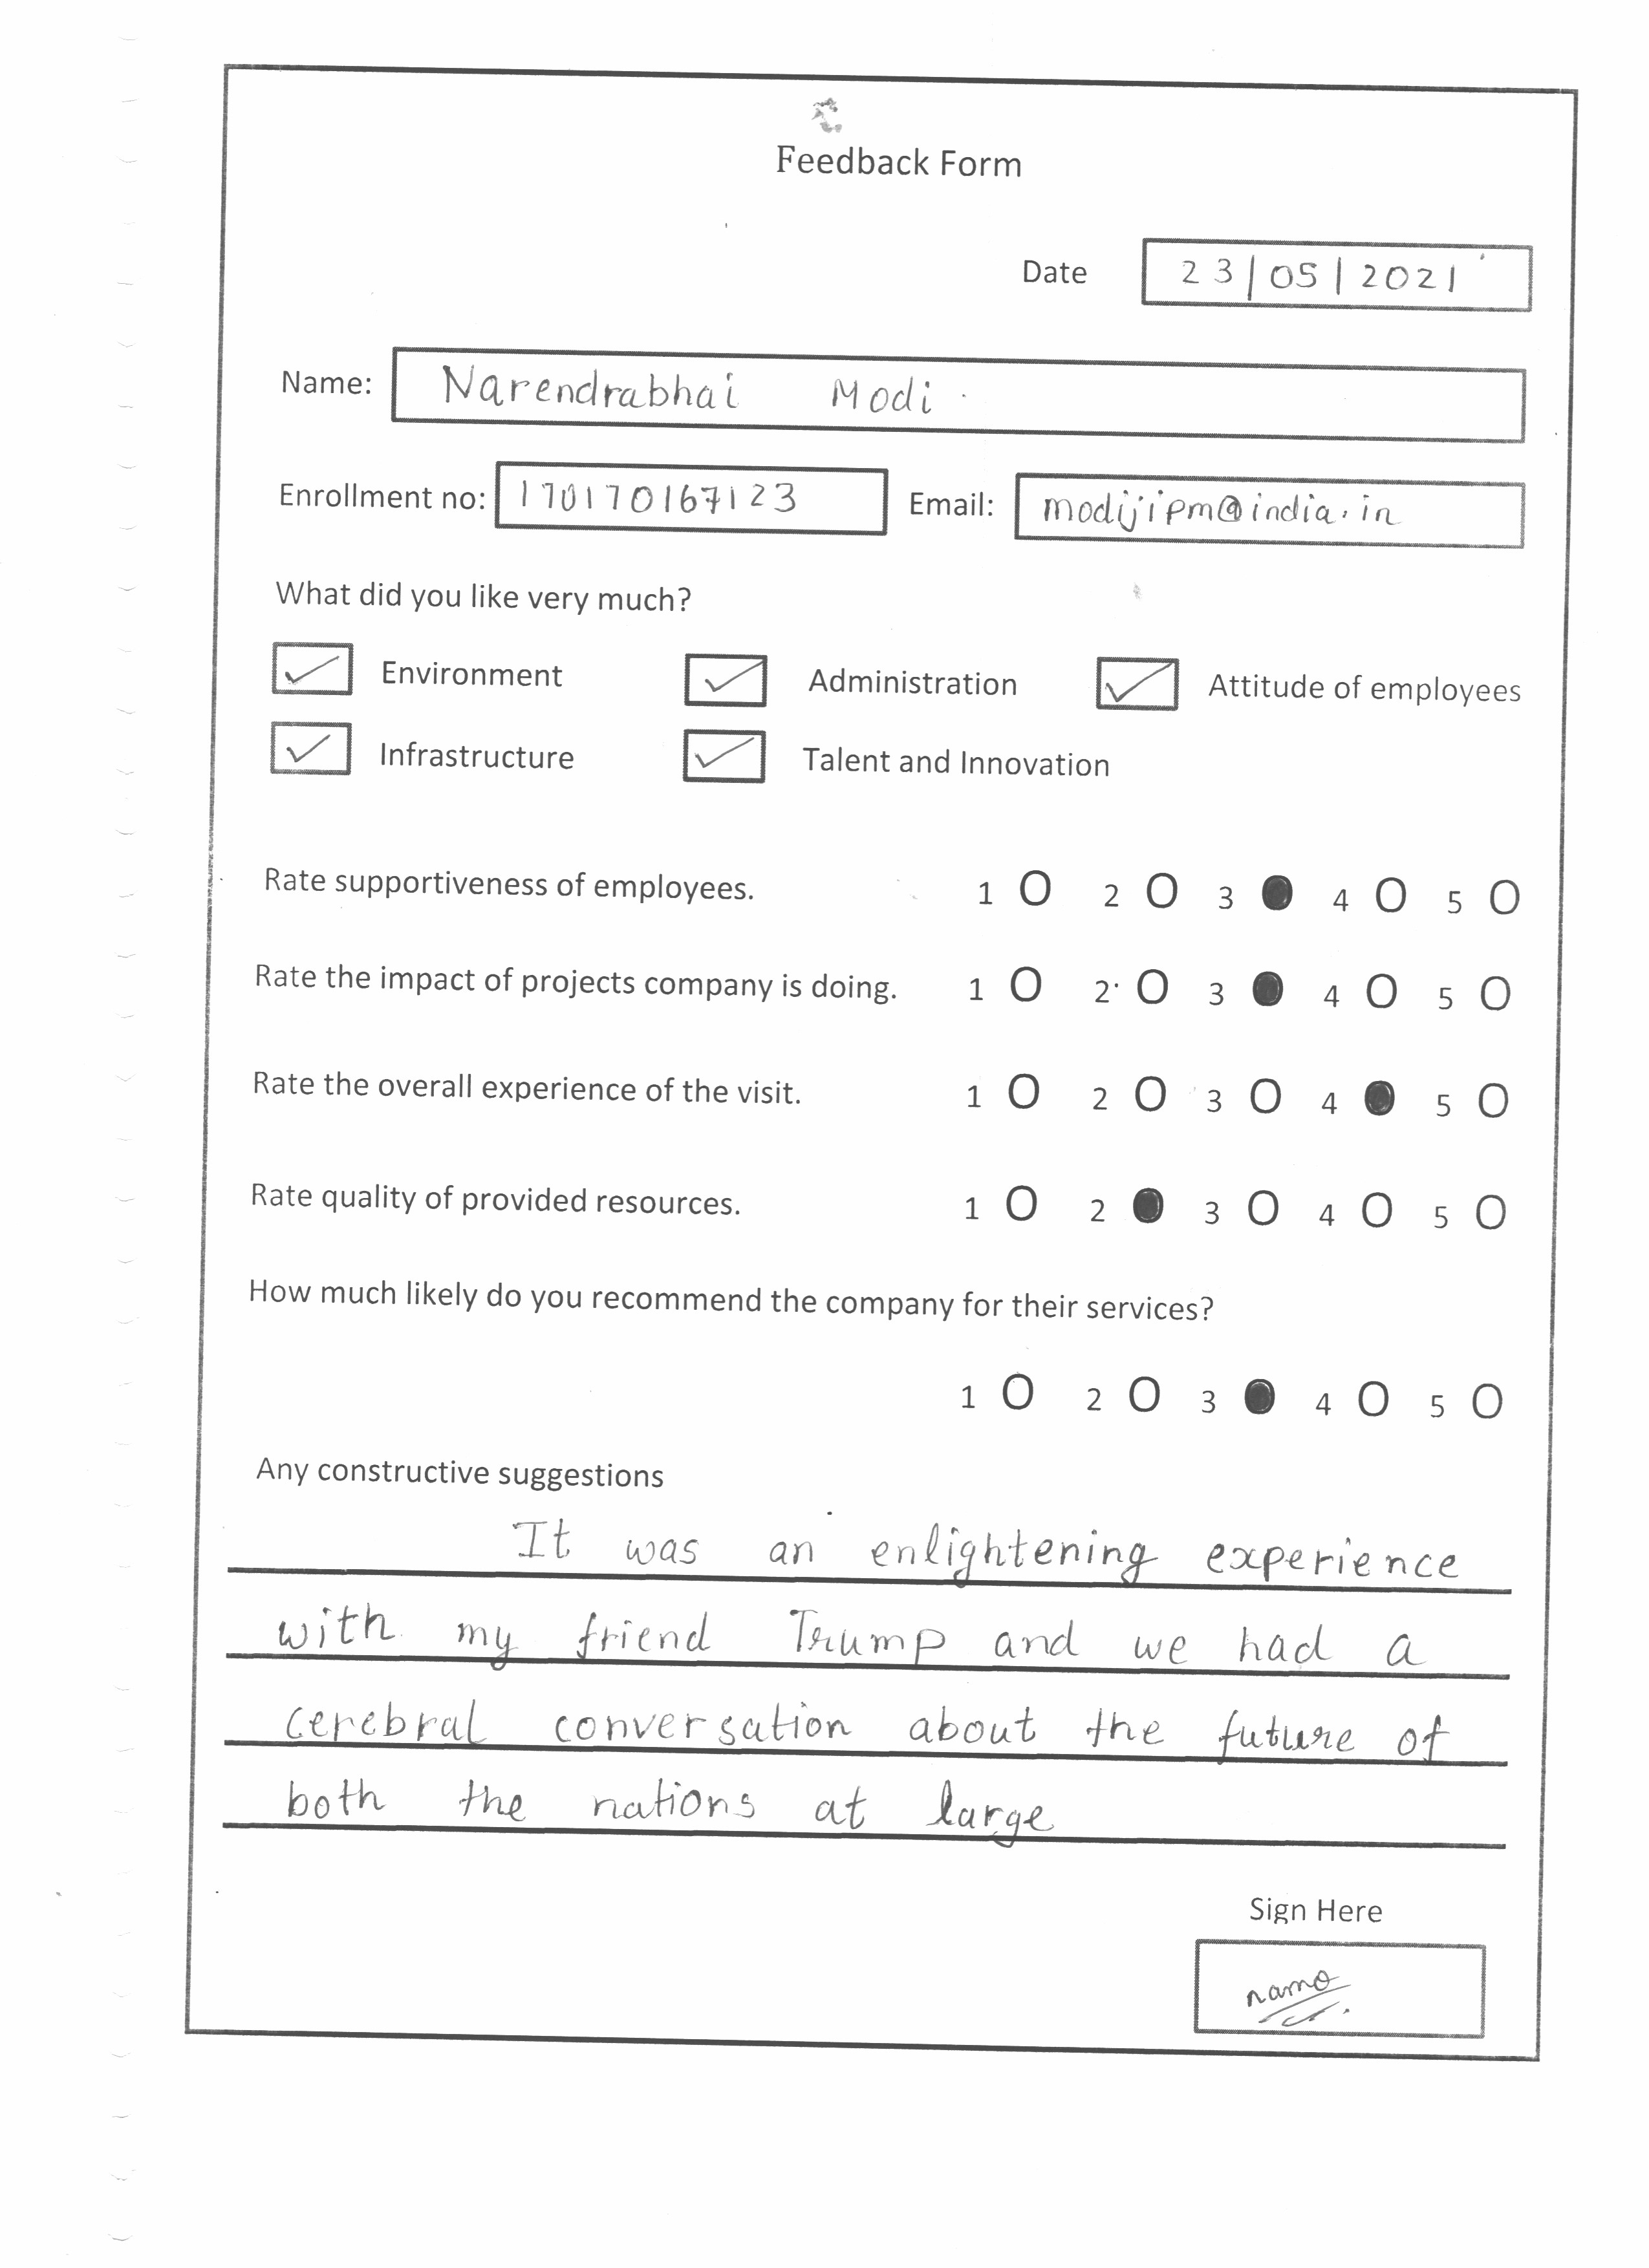 Feedback Form
Date 23/05/2021
Name: Narendrabhai Modi
Enrollment no: 170170167123 Email: modijipm@india.in
What did you like very much?
Environment Administration Attitude of employees
Infrastructure Talent and Innovation
Rate supportiveness of employees. 1 2 3 4 5
Rate the impact of projects company is doing. 1 2 3 4 5
Rate the overall experience of the visit. 1 2 3 4 5
Rate quality of provided resources. 1 2 3 4 5
How much likely do you recommend the company for their services?
1 2 3 4 5
Any constructive suggestions
It was an enlightening experience
with my friend Trump and we had a
cerebral conversation about the future of
both the nations at large
Sign Here
namo